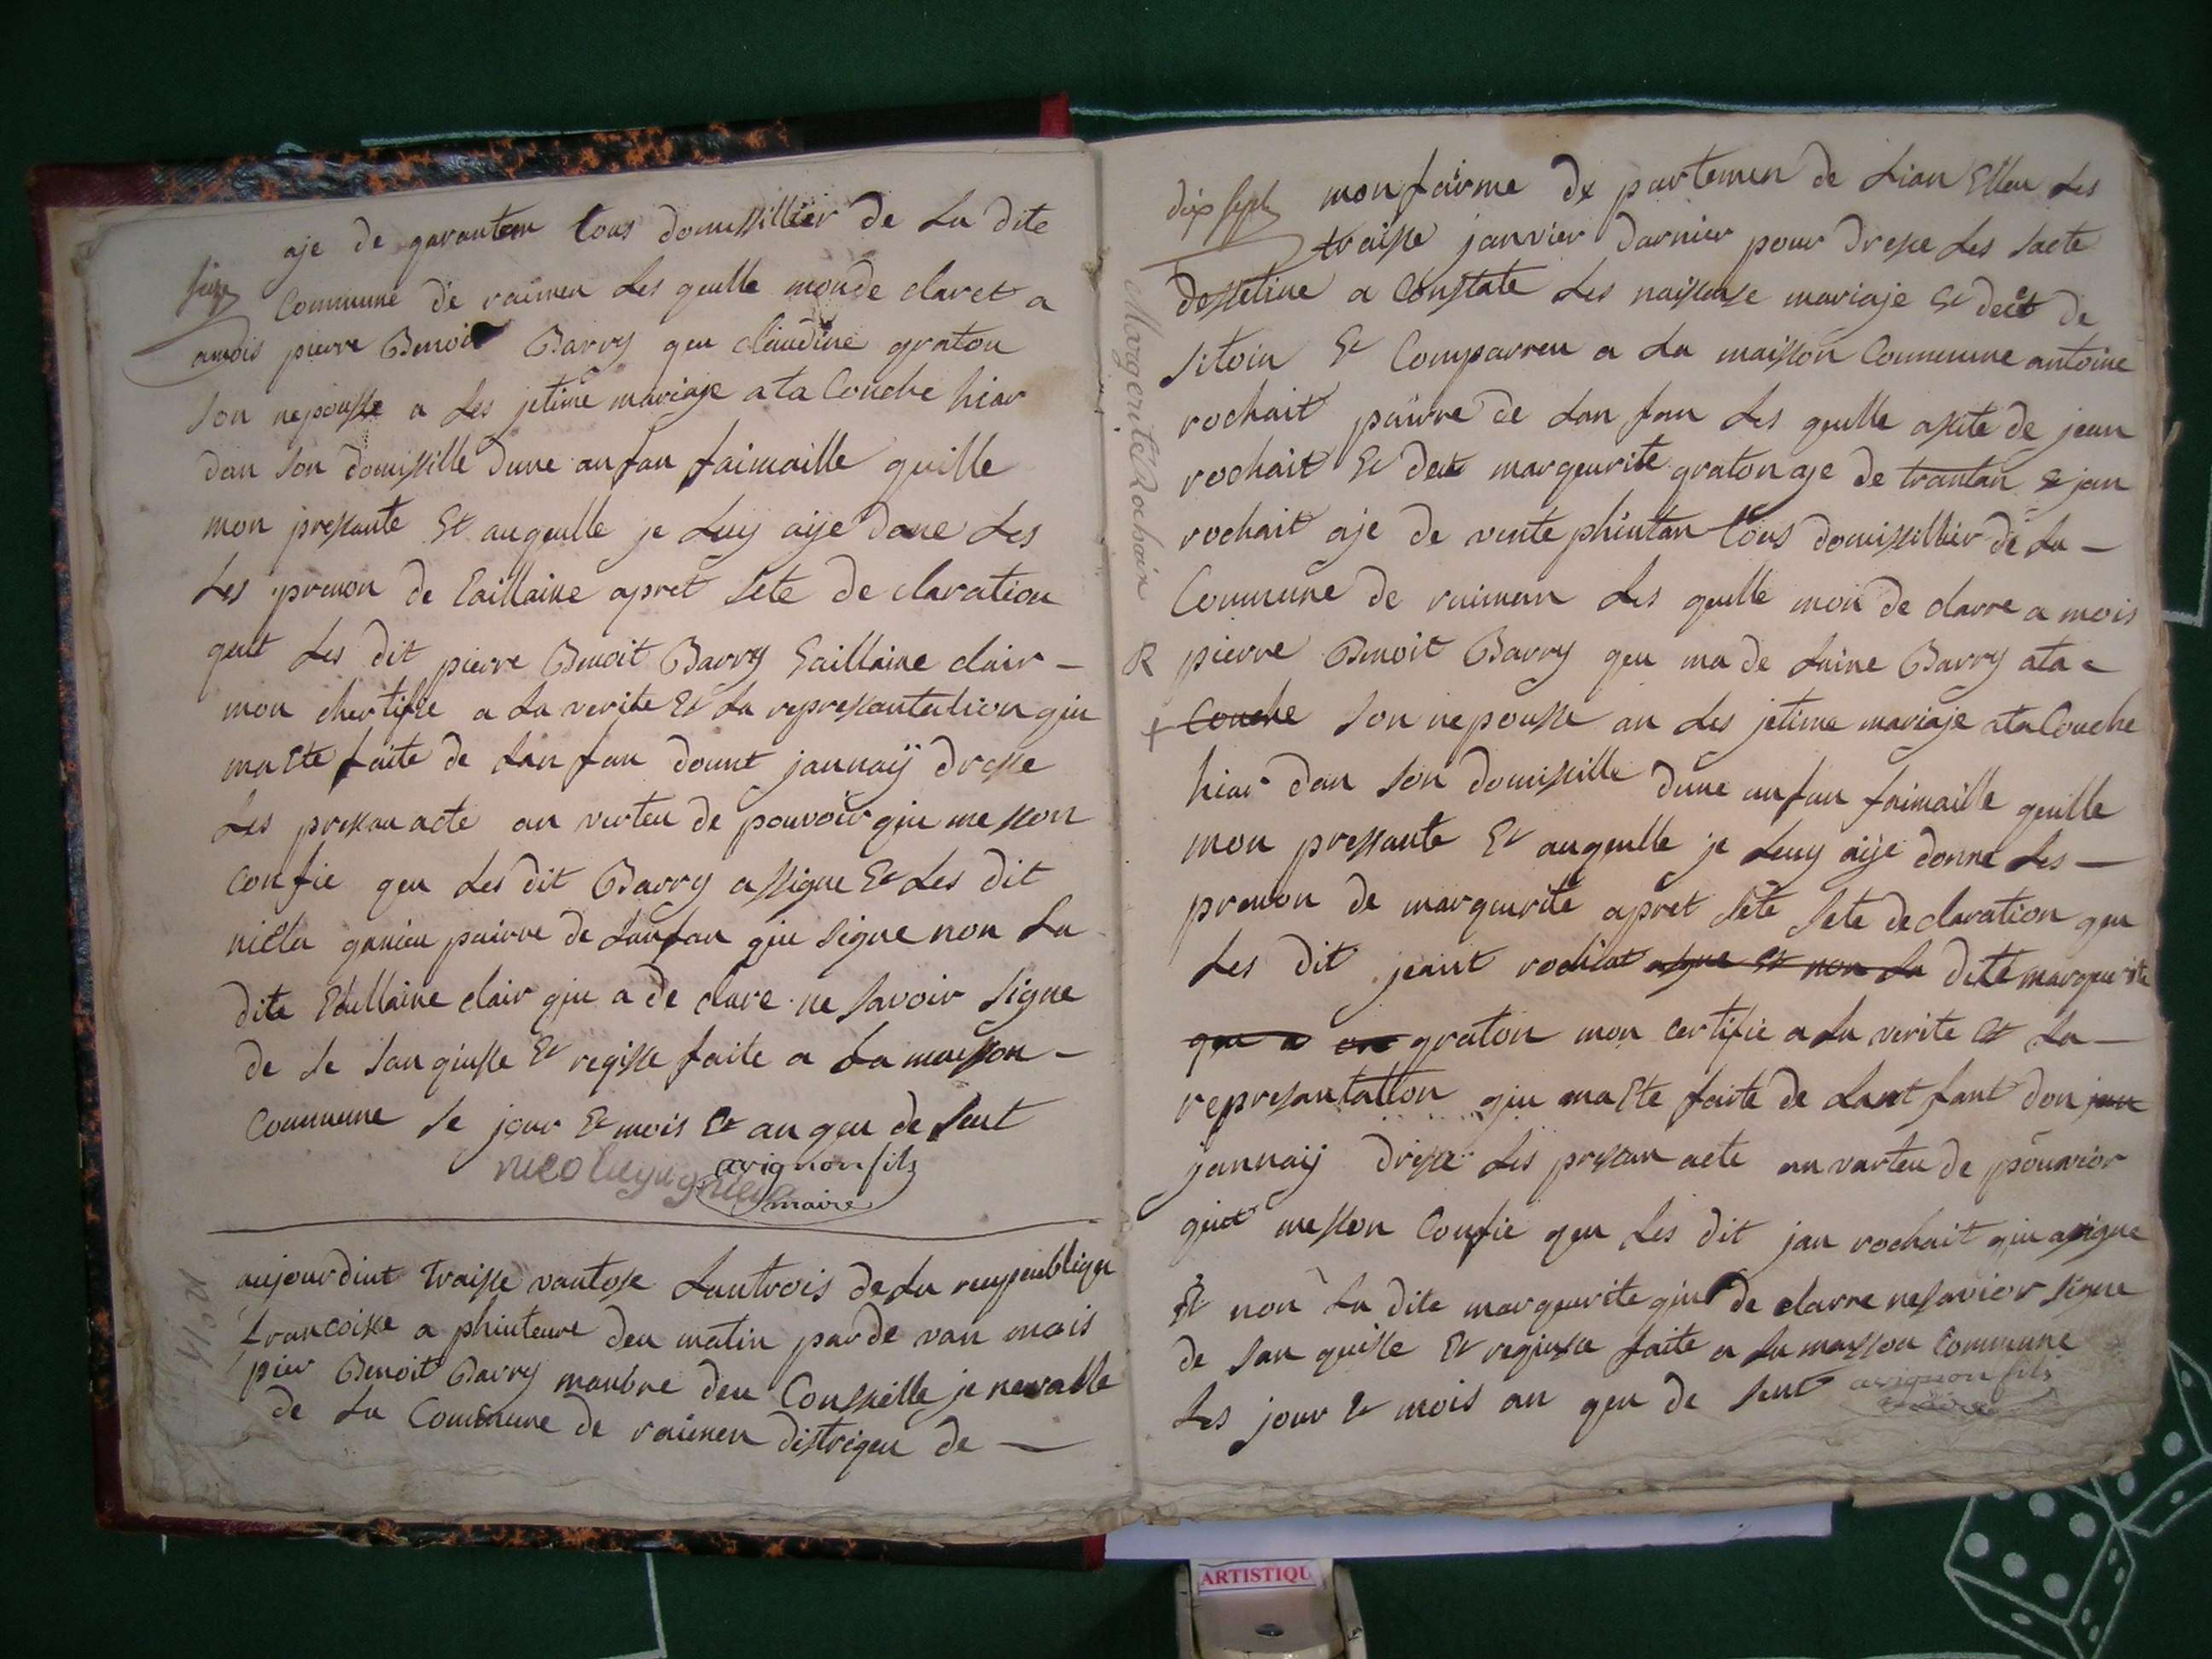 aje de garantem tous domissillier de La dite
seize Commune de raimen Les quelle monde claret a
amois pierre Benoit Barry qeu claudine graton
son nepousse a Les jetime mariaje ata Couche hiar
dan son domissille dune anfan faimaille quille
mon pressante Et auqeulle je Luy aije done Les
Les prenon de Eaillaine apret sete de claration
qeut Les dit pierre Benoit Barry Eaillaine clair -
mon chertifie a La verite Et La repressantation qiu
ma Ete faite de Lan fan dount jannaÿ dresse
Les pressan acte an verteu de pouvoir qiu me sson
Confie qeu Les dit Barry assigne Et Les dit
paire de Lanfan qiu signe non La
dite Eaillaine clair qiu a de clare ne savoir signe
de se san qiusse Et regisse faite a La maisson -
Commune se jour Et mois Et an qeu de seut
avignon fils
maire
aujourdiut traisse vantosse Lantrois de La reupeublique
francoisse a phinteure deu matin parde van mois
pier Benoit Barry manbre deu Consseille je neralle
de La Commune de raimen distriqeu de —
dix sept monfairme de partemen de Lion Elleu Les
traisse janvier darnier pour dresse Les sacte
dessetine a Constate Les naissensse mariaje Et deet de
sitoin Et Comparreu a La maisson Commune antoine
rochait paivre de Lan fan Les quelle assite de jean
rochait Et det margeurite graton aje de trantan Et jan
rochait aje de vente phintan tous domissillier de La -
Commune de raimen Les quelle mon de clarre a mois
pierre Benoit Barry qeu ma de Laine Barry ata -
Couche son nepousse an Les jetime mariaje ata Couche
hiar dan son domissille dune anfan faimaille quille
mon pressante Et auqeulle je Leuy aije donne Les -
prenon de margeurite apret sete sete declaration qeu
Les dit jeant rochiat asigne Et non La dite margeurite
qeu a graton mon certifie a La verite Et La -
repressantation qiu ma Ete faite de Lant fant don jan
jannaij dresse Les pressan acte an varteu de pouvior
qiut messon Confie qeu Les dit jan rochait qiu assigne
Et non La dite margeurite qiu de clarre ne savior signe
de san quisse Et regiusse faite a La maisson Commune
Les jour Et mois an qeu de seut avignon fils
Marguerite Rochair
R
+
ARTISTIQU